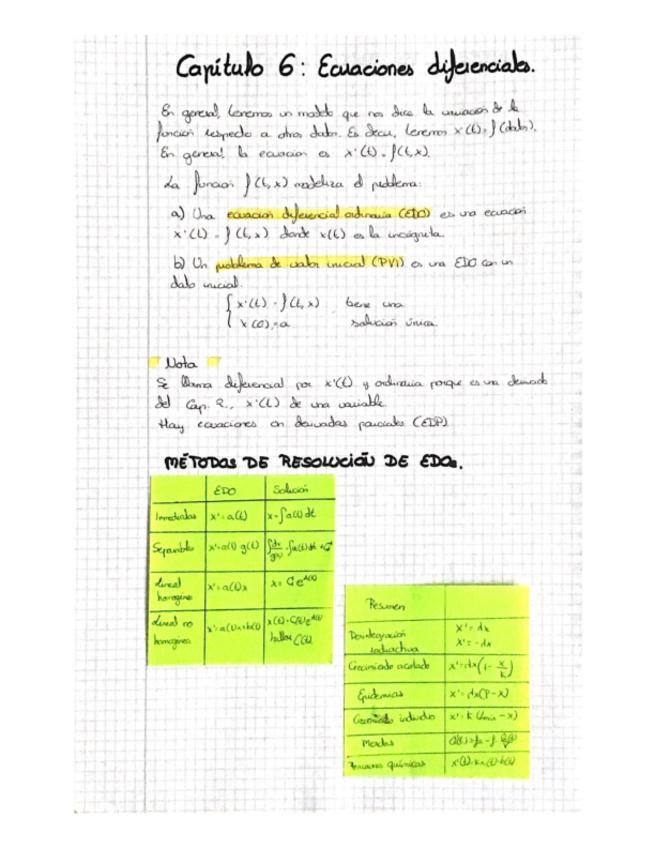 Capítulo 6: Ecuaciones diferenciales.
En general, tenemos un modelo que nos dice la variación de la
función respecto a otros datos. Es decir, tenemos x'(t) = f(datos).
En general, la ecuación es x'(t) = f(t,x).
La función f(t,x) modeliza el problema:
a) Una ecuación diferencial ordinaria (EDO) es una ecuación
x'(t) = f(t,x) donde x(t) es la incógnita.
b) Un problema de valor inicial (PVI) es una EDO con un
dato inicial.
x'(t) = f(t,x) tiene una
x(0) = a solución única.
Nota
Se llama diferencial por x'(t) y ordinaria porque es una derivada
del Cap. 2, x'(t) de una variable.
Hay ecuaciones en derivadas parciales (EDP)
MÉTODOS DE RESOLUCIÓN DE EDOs.
EDO Solución
Inmediatas x' = a(t) x = ∫a(t) dt
Separables x' = a(t) g(t) ∫dx/g(x) = ∫a(t)dt + C
Lineal homogénea x' = a(t)x x = Ce^A(t)
Lineal no homogénea x' = a(t)x + b(t) x(t) = C(t)e^A(t) hallar C(t)
Resumen
Desintegración radiactiva x' = αx x' = -αx
Crecimiento acotado x' = αx(1 - x/k)
Epidemias x' = αx(P - x)
Crecimiento individuo x' = k (Lmáx - x)
Mezclas
Reacciones químicas